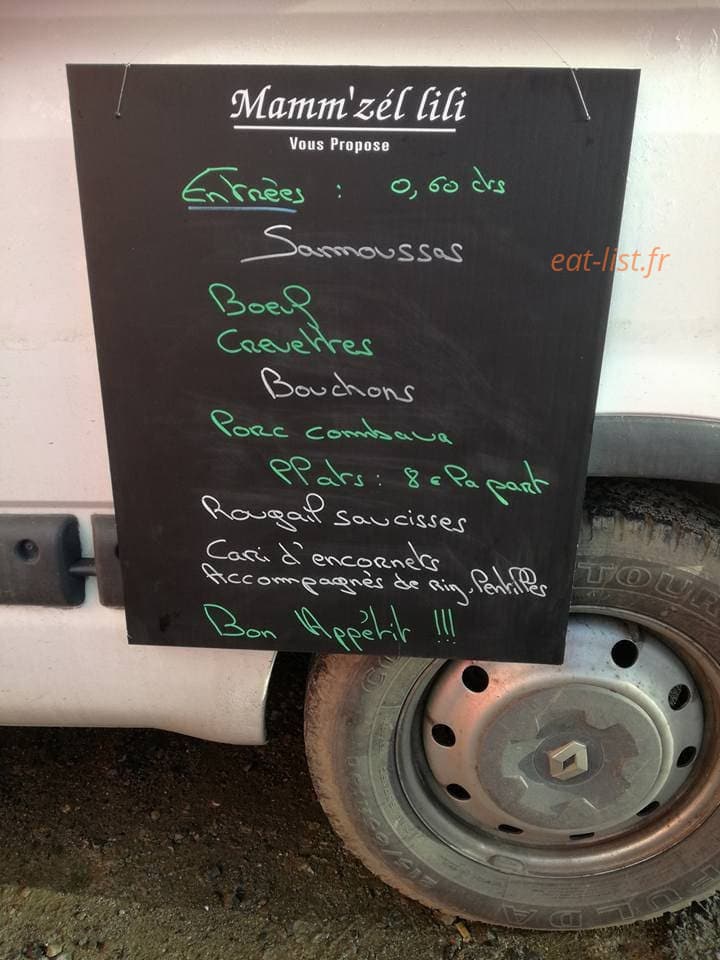 Mamm'zél lili
Vous Propose
Entrées : 0,60 cts
Samoussas
eat-list.fr
Boeuf
Crevettes
Bouchons
Porc combava
Plats : 8 € la part
Rougail saucisses
Cari d'encornets
Accompagnés de riz, lentilles
Bon Appétit !!!
TOUR
FULDA